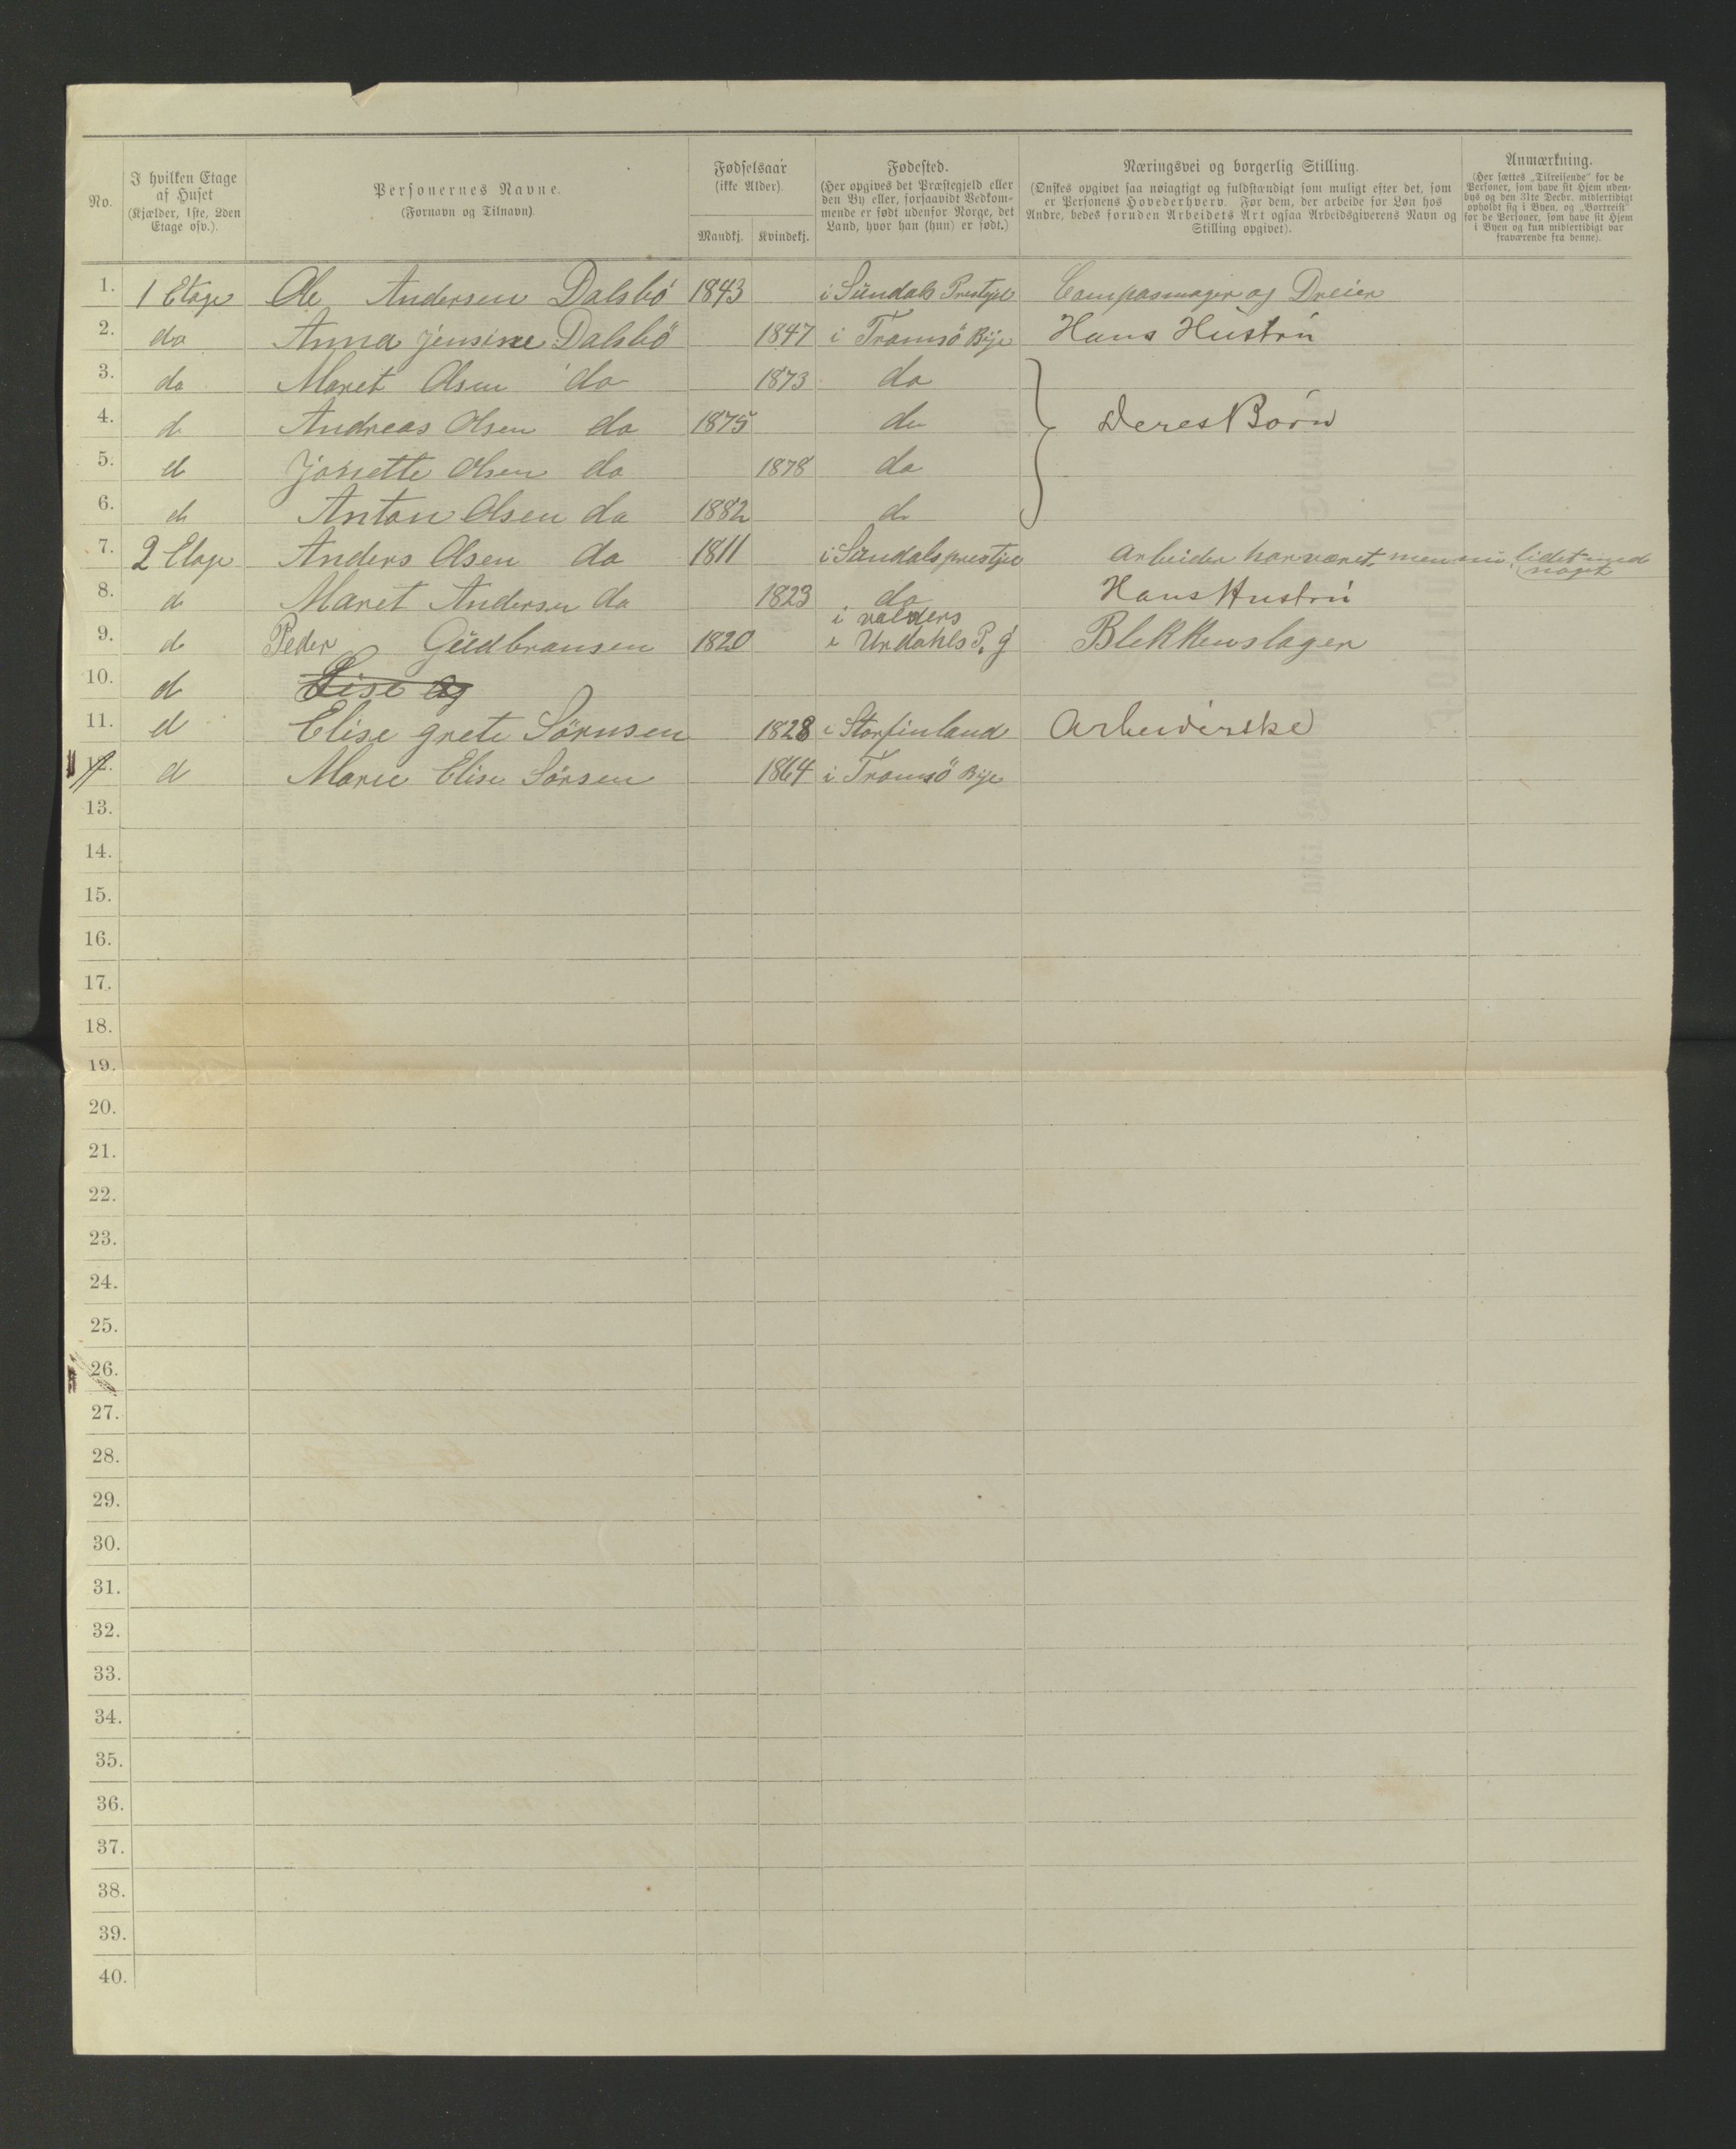 No.
I hvilken Etage af Huset (Kjælder, 1ste, 2den Etage osv.).
Personernes Navne. (Fornavn og Tilnavn)
Fødselsaar (ikke Alder). Mandkj. Kvindekj.
Fødested. (Her opgives det Præstegjeld eller den By eller, forsaavidt Vedkommende er født udenfor Norge, det Land, hvor han (hun) er født.)
Næringsvei og borgerlig Stilling. (Ønskes opgivet saa nøiagtigt og fuldstændigt som muligt efter det, som er Personens Hovederhverv. For dem, der arbeide for Løn hos Andre, bedes foruden Arbeidets Art ogsaa Arbeidsgiverens Navn og Stilling opgivet).
Anmærkning. (Her sættes „Tilreisende" for de Personer, som have sit Hjem udenbys og den 31te Decbr. midlertidigt opholdt sig i Byen, og „Bortreist" for de Personer, som have sit Hjem i Byen og kun midlertidigt var fraværende fra denne).
1. 1 Etage Ole Andersen Dalsbö 1843 i Sündals Prestgjel Compasmager og Dreier
2. do Anna Jensine Dalsbö 1847 i Tromsö Bye Hans Hustrü
3. do Maret Olsen do 1873 do
4. d Andreas Olsen do 1875 do Deres Börn
5. d Jonette Olsen do 1878 do
6. d Anton Olsen do 1882 d
7. 2 Etage Anders Olsen do 1811 i Sündals prestje Arbeider har været, men nü lidet med noget
8. d Maret Andersen do 1823 do Hans Hustrü
i valders
9. d Peder Güdbransen 1820 i Urdahls P. g Blekkenslager
10. d Elise og
11. d Elise grete Sörnsen 1828 i Storfinland Arbeiderske
12. d Marie Elise Sörsen 1864 i Tromsö Bye
13.
14.
15.
16.
17.
18.
19.
20.
21.
22.
23.
24.
25.
26.
27.
28.
29.
30.
31.
32.
33.
34.
35.
36.
37.
38.
39.
40.